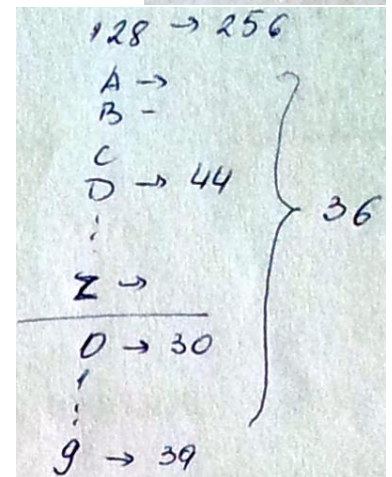 128 → 256
A →
B -
C
D → 44
⋮
Z →
0 → 30
1
⋮
9 → 39
36